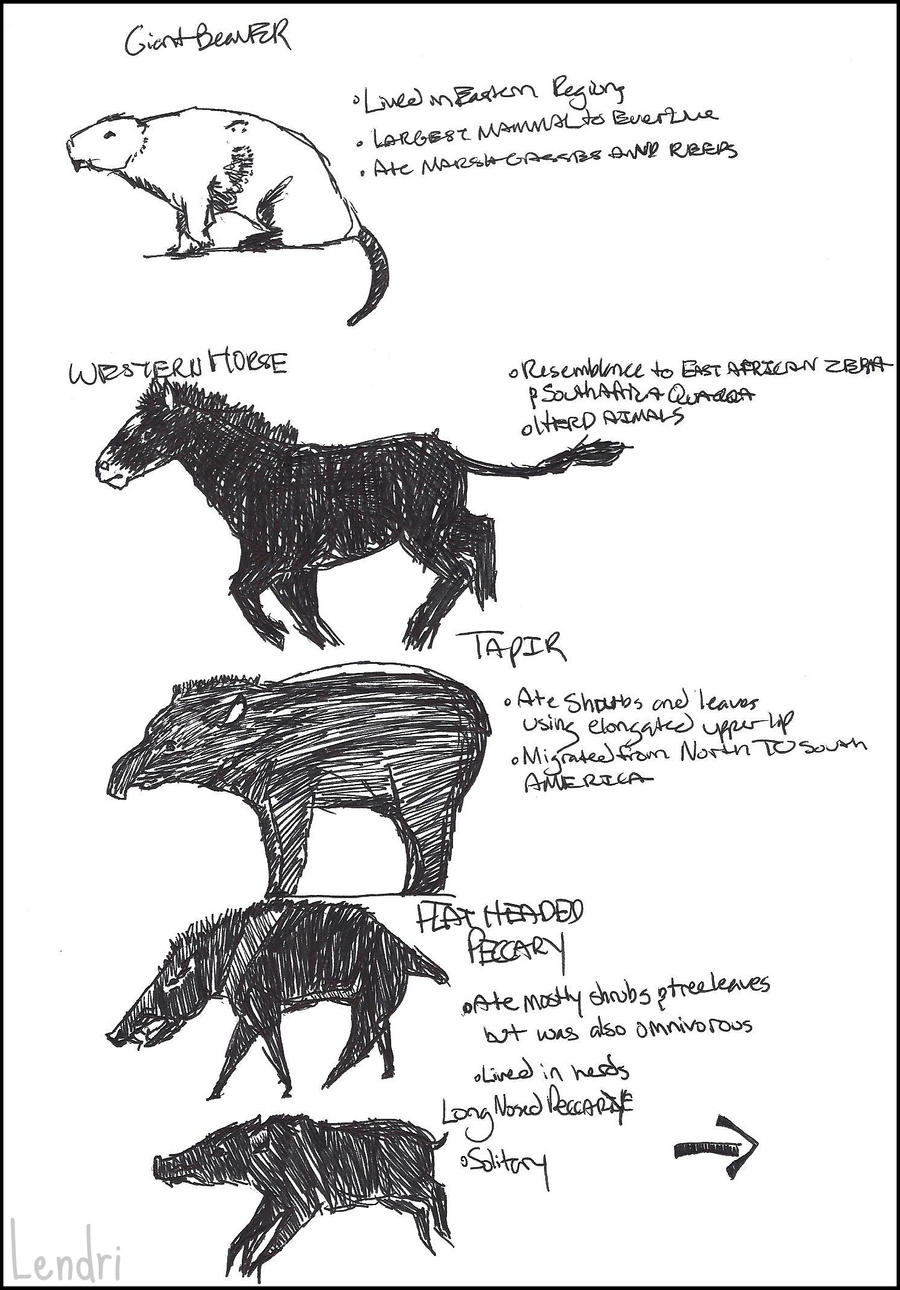 Giant Beaver
• Lived in Eastern Regions
• LARGEST MAMMAL to Ever Live
• Ate MARSH GRASSES AND REEDS
WESTERN HORSE
• Resemblance to EAST AFRICAN ZEBRA
& South Africa QUAGGA
• HERD AIMALS
TAPIR
• Ate Shrubs and leaves
using elongated upper lip
• Migrated from North TO South
AMERICA
FLAT HEADED
PECCARY
• Ate mostly shrubs & tree leaves
but was also omnivorous
• Lived in herds
Long Nosed PECCARY
• Solitary
Lendri